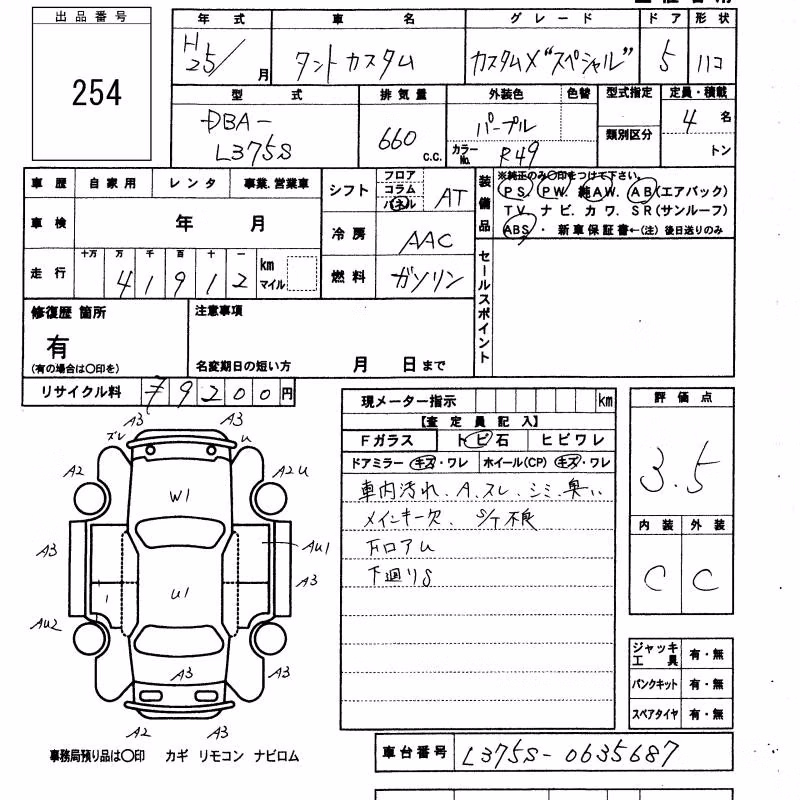 出品番号
254
年式 車名 グレード ドア 形状
H25/ 月 タントカスタム カスタムX"スペシャル" 5 ハコ
型式 排気量 外装色 色替 型式指定 定員・積載
DBA-
L375S 660 c.c. パープル 類別区分 4 名
カラーNo. R49 トン
車歴 自家用 レンタ 事業.営業車
車検 年 月
走行 十万 万 千 百 十 一
4 1 9 1 2 km マイル
シフト フロア コラム パネル AT
冷房 AAC
燃料 ガソリン
装備品 ※純正のみ○印をつけて下さい。
PS. PW. 純AW. AB(エアバック)
TV. ナビ. カワ. SR(サンルーフ)
ABS ・ 新車保証書←(注) 後日送りのみ
セールスポイント
修復歴 箇所
有
(有の場合は○印を)
注意事項
名変期日の短い方 月 日まで
リサイクル料 79200円
現メーター指示 km
【査定員記入】
Fガラス トビ石 ヒビワレ
ドアミラー キズ・ワレ ホイール(CP) キズ・ワレ
車内汚れ. A.スレ. シミ.臭い
メインキー欠. S/T不良
FロアU
下廻りS
評価点
3.5
内装 外装
C C
ジャッキ工具 有・無
パンクキット 有・無
スペアタイヤ 有・無
A3 A3
ズレ U
A2 A2 U
W1
A3 AU1
U1 A3
1
AU2
A3 A3
A2 A3
事務局預り品は○印 カギ リモコン ナビロム
車台番号 L375S-0635687